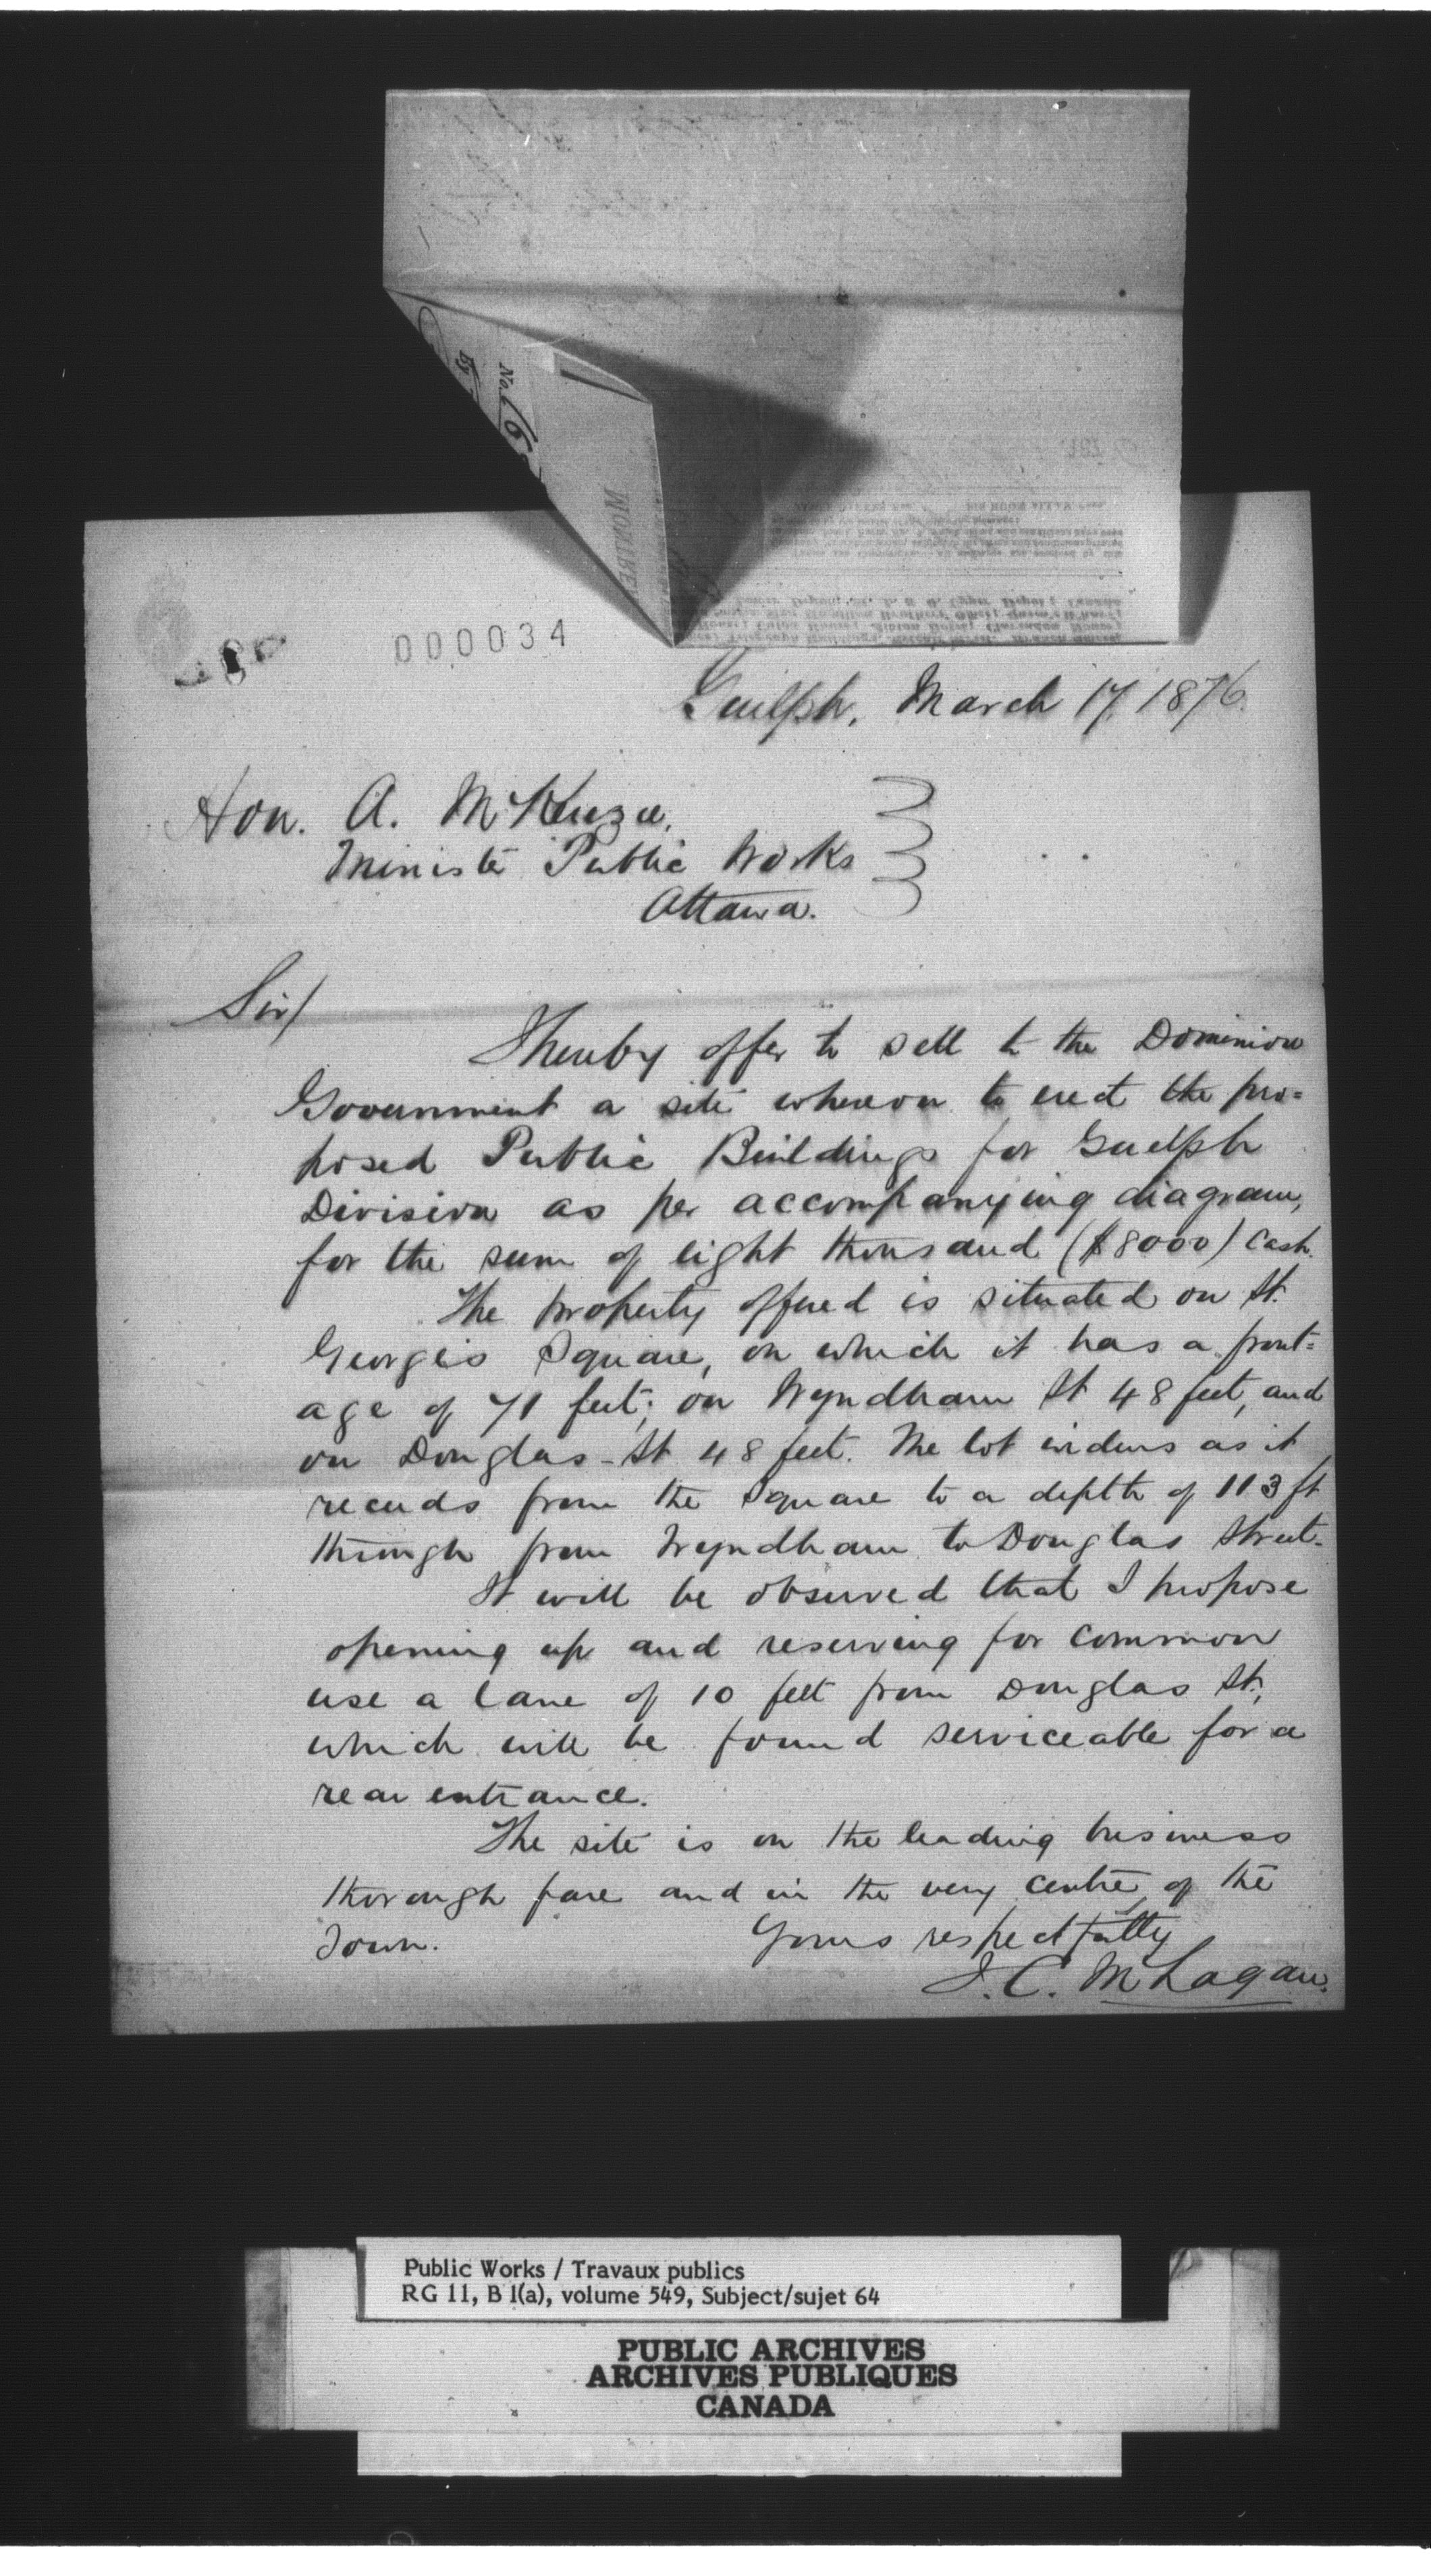 No. 6
By
MONTREA
000034
Guelph, March 17, 1876.
Hon. A. McKenzie,
Minister Public Works
Ottawa.
Sir/
I hereby offer to sell to the Dominion
Government a site whereon to erect the pro=
posed Public Buildings for Guelph
Division as per accompanying diagram,
for the sum of eight thousand ($8000) cash.
The property offered is situated on St.
George's Square, on which it has a front=
age of 71 feet; on Wyndham St 48 feet, and
on Douglas-St 48 feet. The lot widens as it
recedes from the Square to a depth of 113 ft
through from Wyndham to Douglas Street.
It will be observed that I propose
opening up and reserving for common
use a lane of 10 feet from Douglas St,
which will be found serviceable for a
rear entrance.
The site is on the leading business
thorough fare and in the very centre of the
Town.
Yours respectfully
J. C. McLagan.
Public Works / Travaux publics
RG 11, B 1(a), volume 549, Subject/sujet 64
PUBLIC ARCHIVES
ARCHIVES PUBLIQUES
CANADA